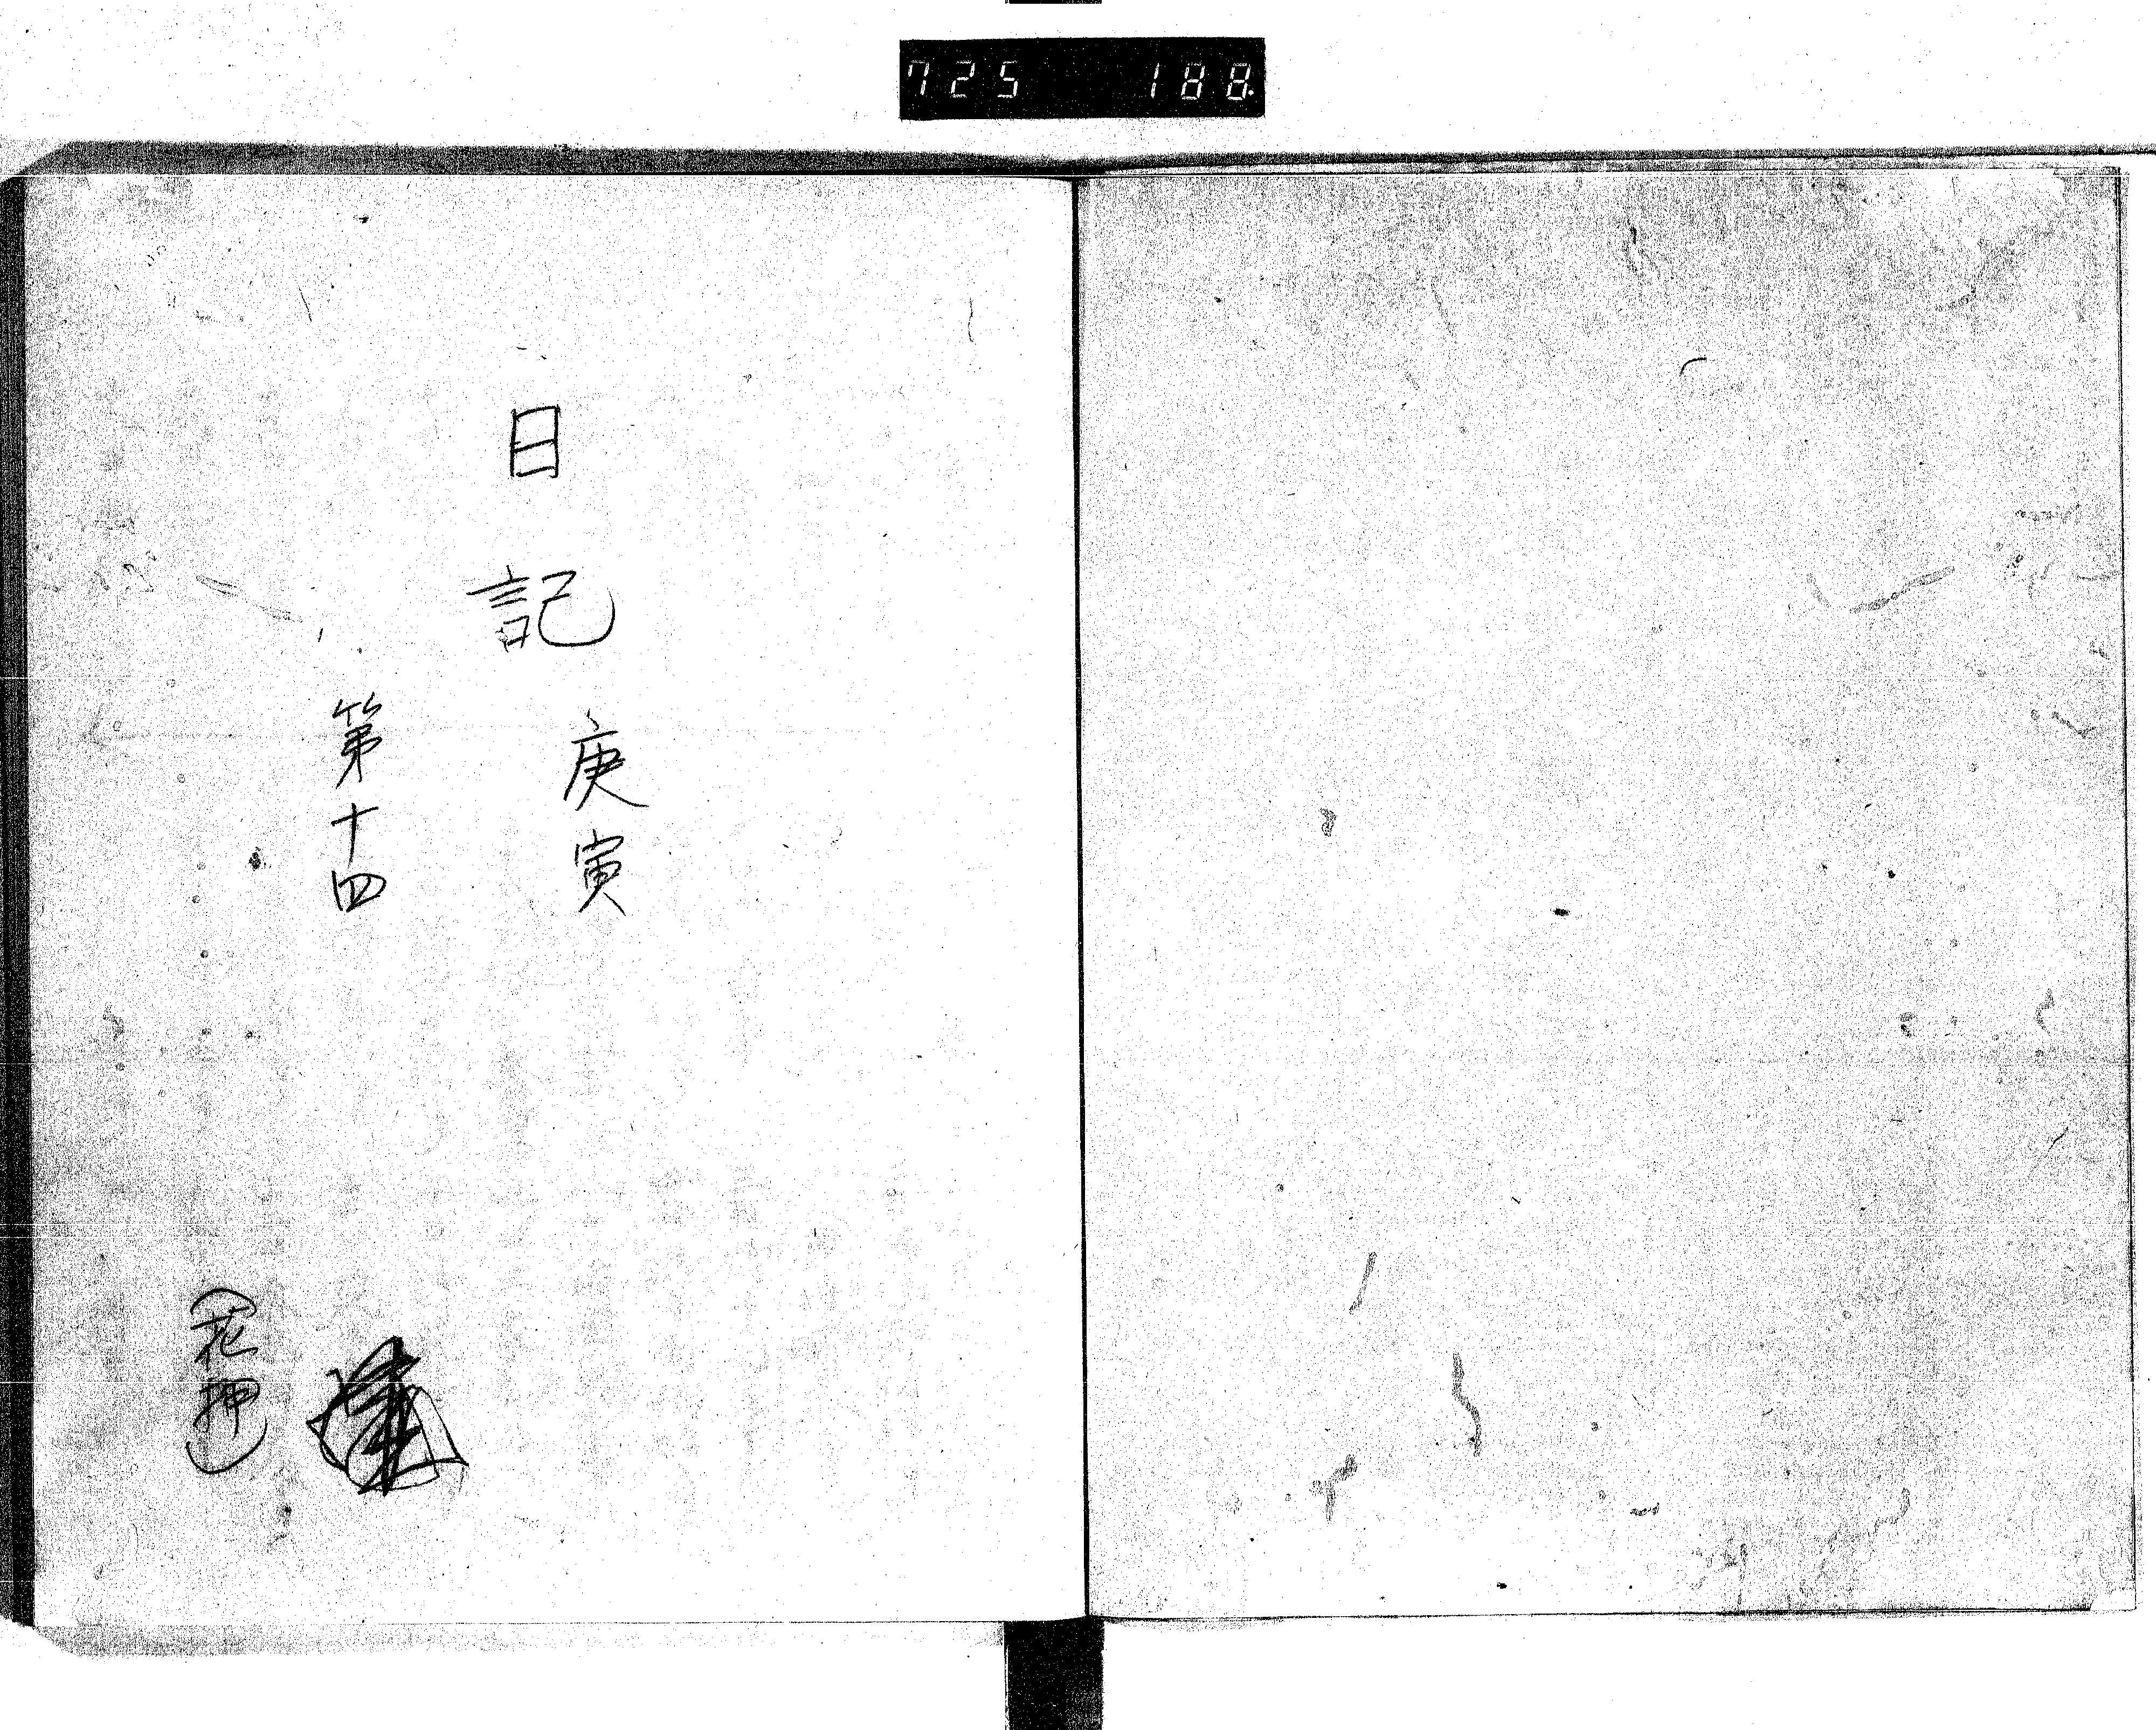 725 188
日記
庚寅
第十四
（花押）